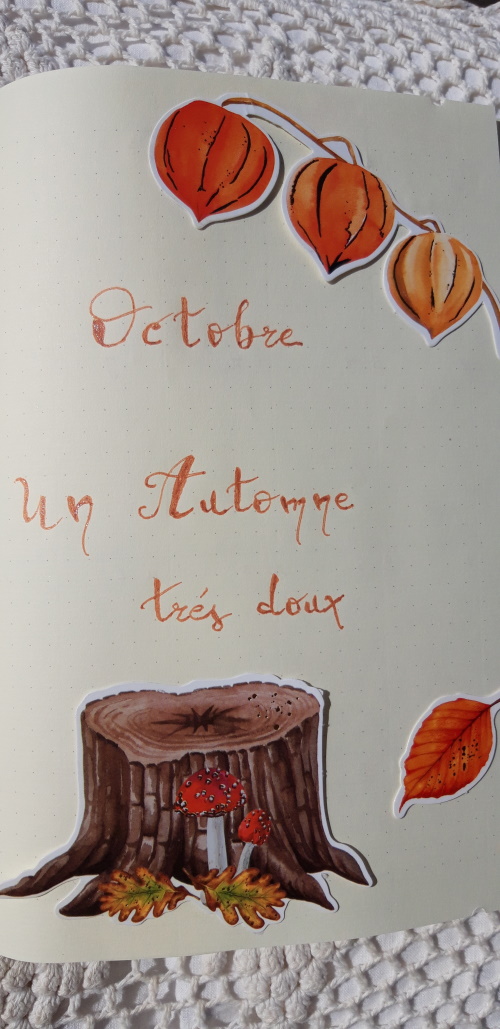 Octobre
Un Automne
trés doux